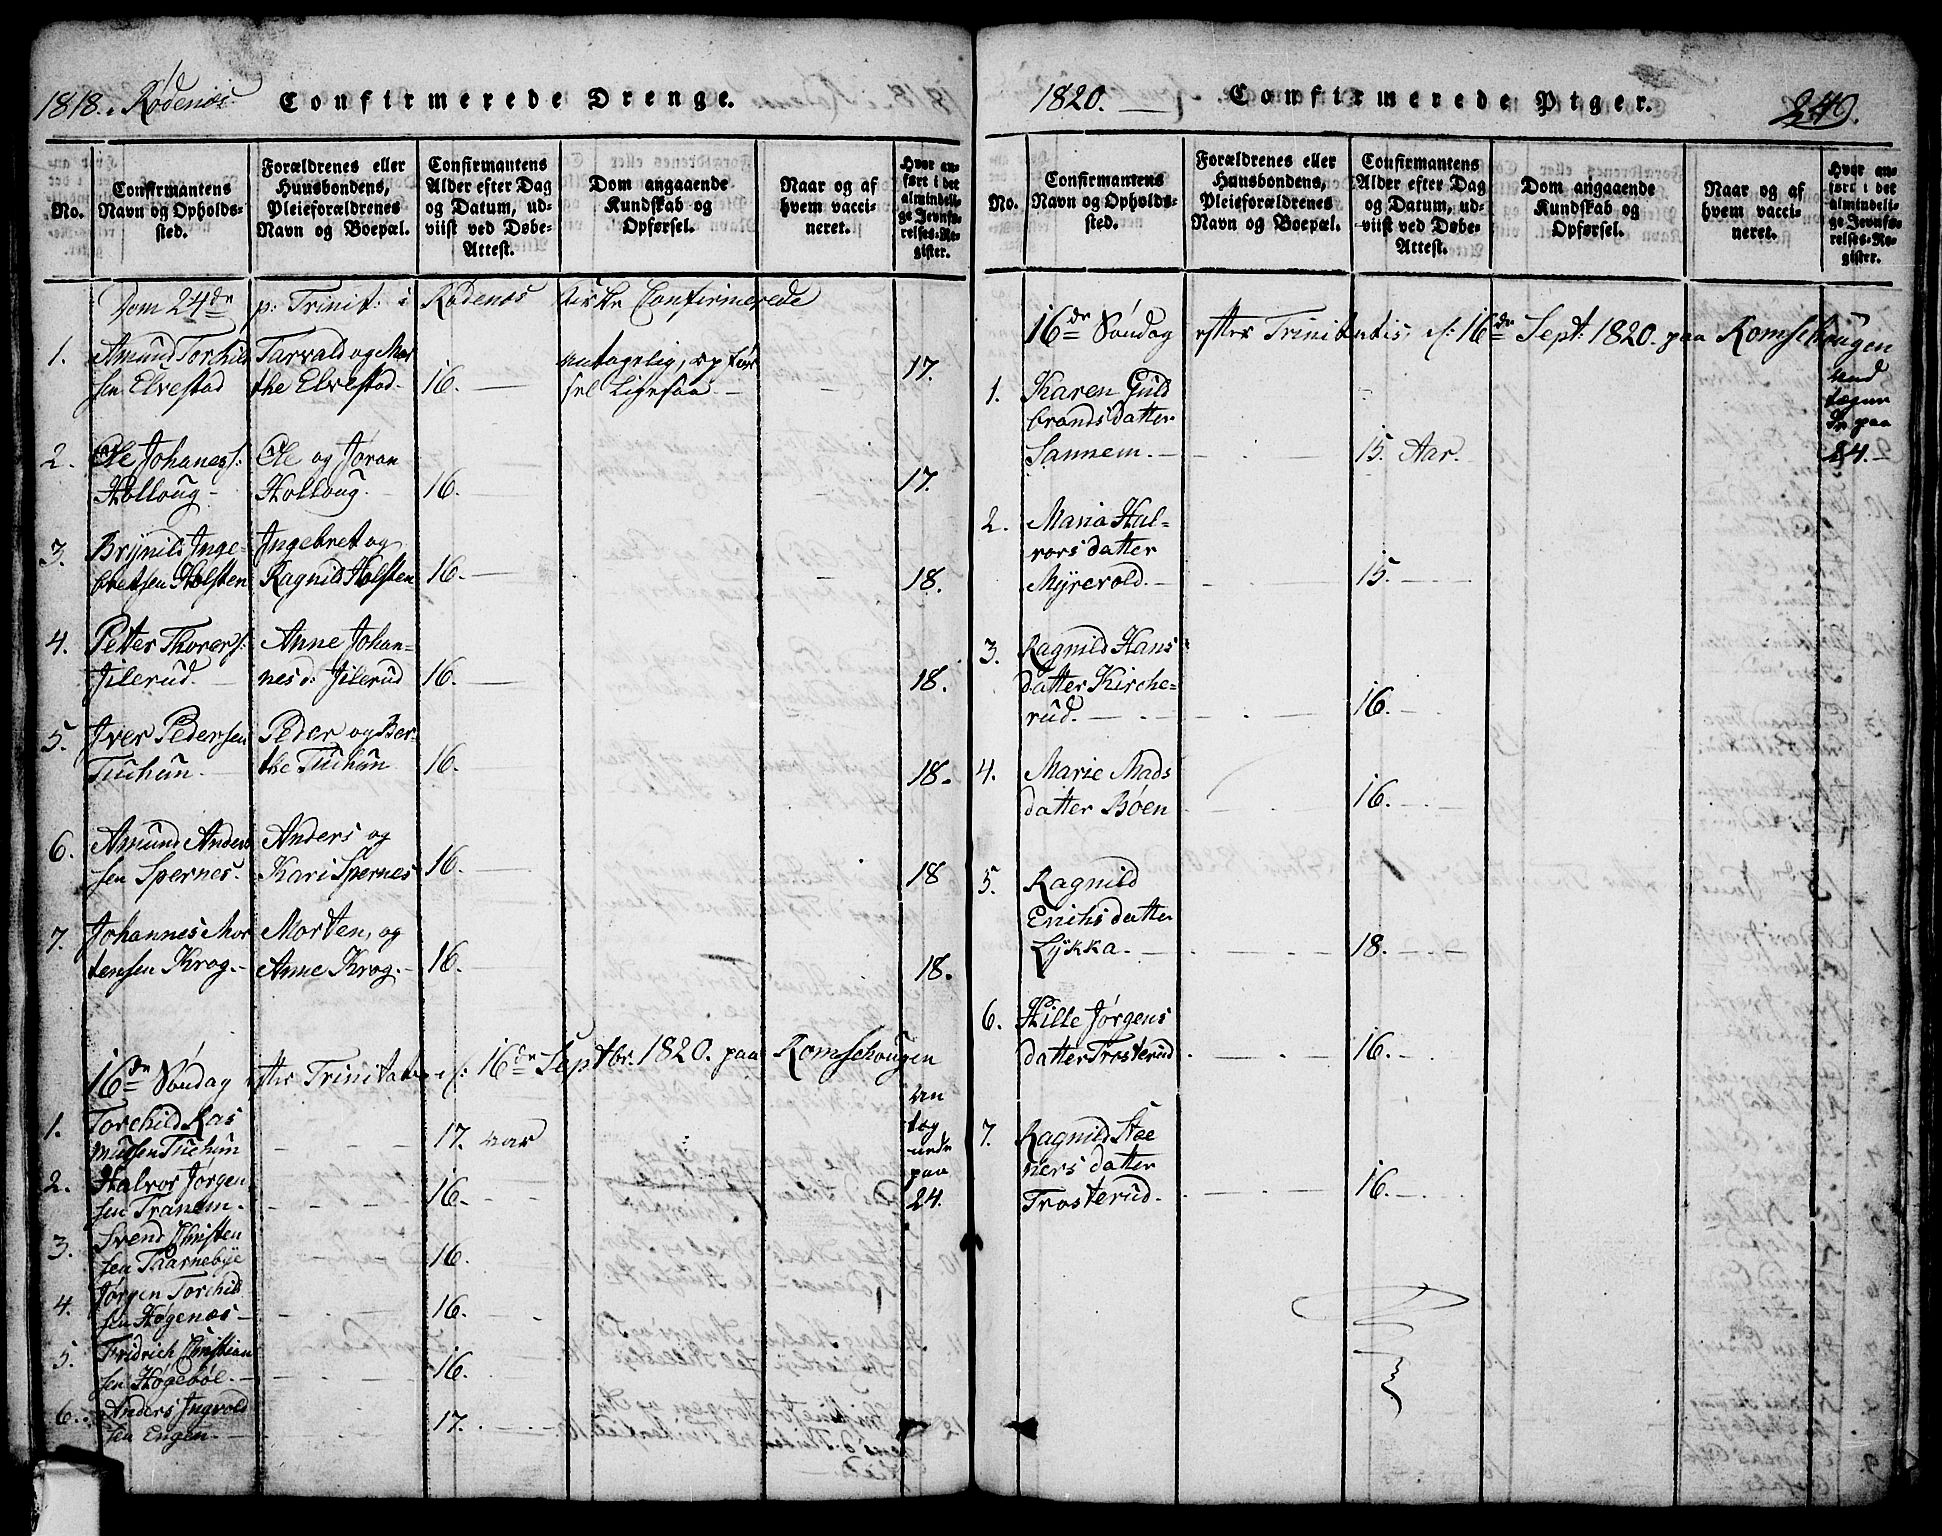 1818. Rødenæs.
Confirmerede Drenge.
No.
Confirmantens Navn og Opholds-
sted.
Forældrenes eller
Huusbondens,
Pleieforældrenes
Navn og Boepæl.
Confirmantens
Alder efter Dag
og Datum, ud-
viist ved Døbe-
Attest.
Dom angaaende
Kundskab og
Opførsel.
Naar og af
hvem vacci-
neret.
Hvor an-
ført i det
almindeli-
ge Jevnfø-
relses-Re-
gister.
Dom 24de p: Trinit: i Rødenæs Kirke Confirmerede
1. Amund Torchild Tarvald og Mar
sen Elvestad the Elvestad. 16. antagelig, opfør
sel Ligesaa. 17.
2. Ole Johaness: Ole og Jøran
Holloug Holloug. 16. 17.
3. Brynild Inge- Ingebret og
bretsen Holsten Ragnild Holsten 16. 18.
4. Petter Thorers: Anne Johan-
Jilerud. nesd: Jilerud 16. 18.
5. Iver Pedersen Peder og Ber-
Tuchun. the Tuchun 16. 18.
6. Amund Anders Anders og
sen Spernes. Kari Spernes 16. 18
7. Johannes Mor Morten, og
tensen Krog. Anne Krog. 16. 18.
16de Søndag efter Trinitatis 16de Septbr. 1820. paa Romschougen
an
tog
nede
paa
24.
1. Torchild Ras
mussen Tuchun 17. aar
2. Halvor Jørgen
sen Tranem. 16.
3. Svend Christen
sen Taarnebye 16.
4. Jørgen Torchild
sen Høgenæs 16.
5. Fridrich Christian
sen Høgebøl. 16.
6. Anders Ingvold
sen Engen. 17.
1820.
Confirmerede Piger.
249.
No.
Confirmantens
Navn og Opholds-
sted.
Forældrenes eller
Huusbondens,
Pleieforældrenes
Navn og Boepæl.
Confirmantens
Alder efter Dag
og Datum, ud-
viist ved Døbe-
Attest.
Dom angaaende
Kundskab og
Opførsel.
Naar og af
hvem vacci-
neret.
Hvor an-
ført i det
almindeli-
ge Jevnfø-
relses-Re-
gister.
16de Søndag efter Trinitatis, 16de Sept: 1820. paa Romschougen
paa
24.
1. Karen Guld
brandsdatter
Sannem. 15. Aar.
2. Maria Hal-
vorsdatter
Myrevold. 15.
3. Ragnild Hans
datter Kirche-
rud. 16.
4. Marie Mads
datter Bøen 16.
5. Ragnild
Erichsdatter
Lykka. 18.
6. Hille Jørgens
datter Trosterud 16.
7. Ragnild Stee
ners datter
Trosterud. 16.